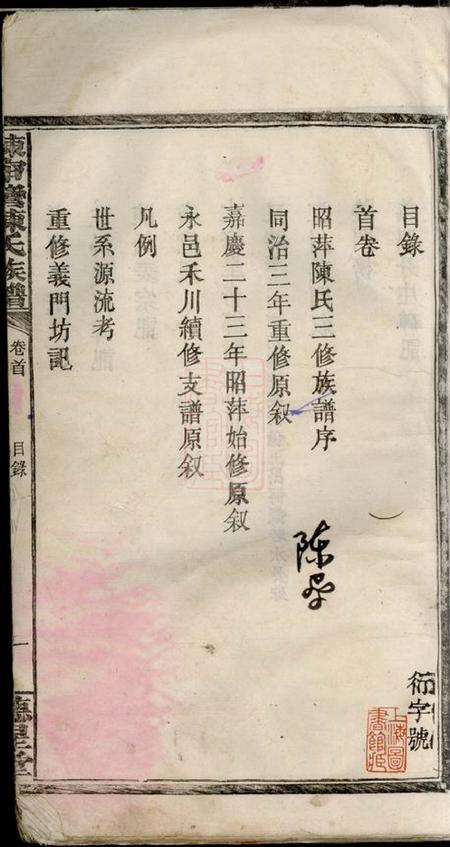 目錄
首卷
昭萍陳氏三修族譜序
同治三年重修原叙
嘉慶二十三年昭萍始修原叙
永邑禾川續修支譜原叙
凡例
世系源流考
重修義門坊記
陳氏族譜
卷首
目錄
一
陈
衍字號
上海圖書館藏